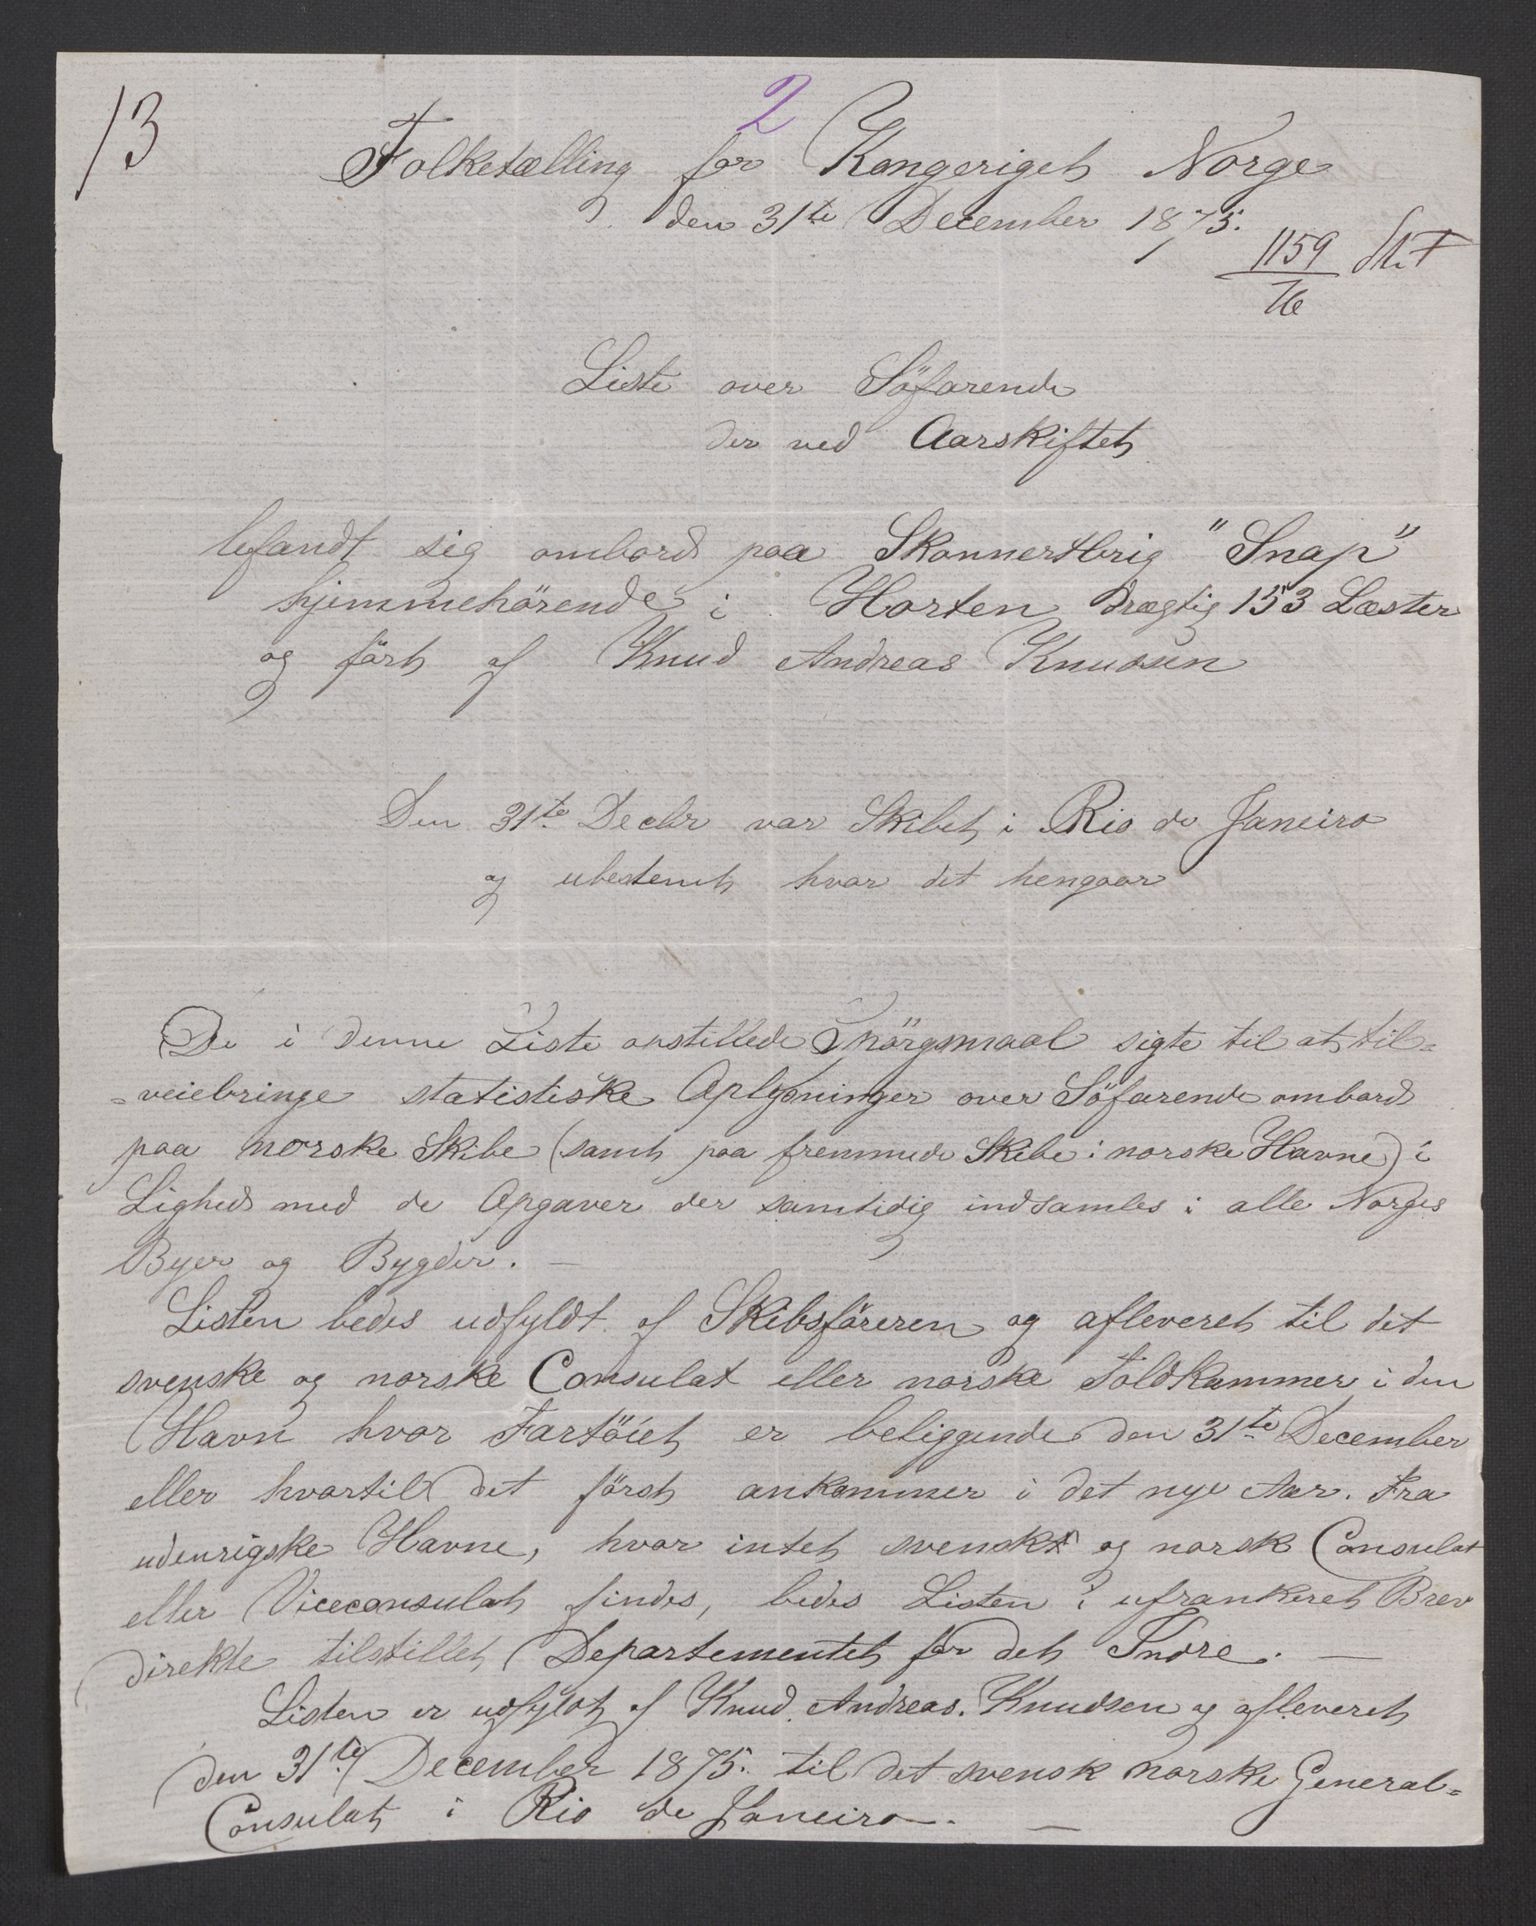 13
2
Folketælling for Kongeriget Norge
den 31te December 1875.
1159
76
Liste over Söfarende
der ved Aarskiftet
befandt sig ombord paa Skonnertbrig "Snap"
hjemmehörende i Horten Drægtig 153 Læster
og fört af Knud Andreas Knudsen
Den 31te Decbr var Skibet i Rio de Janeiro
og ubestemt hvor det hengaar
De i denne Liste anstillede Spörgsmaal sigte til at til=
=veiebringe statistiske Oplysninger over Söfarende ombord
paa norske Skibe (samt paa fremmede Skibe i norske Havne) i
Lighed med de Opgaver der samtidig indsamles i alle Norges
Byer og Bygder. —
Listen bedes udfyldt af Skibsföreren og afleveret til det
svenske og norske Consulat eller norske Toldkammer i den
Havn hvor Fartöiet er beliggende den 31te December
eller hvortil det först ankommer i det nye Aar. Fra
udenrigske Havne, hvor intet svensk og norsk Consulat
eller Viceconsulat findes, bedes Listen i ufrankeret Brev
direkte tilstillet Departementet for det Indre. —
Listen er udfyldt af Knud. Andreas. Knudsen og afleveret
den 31te December 1875. til det svensk norske General=
Consulat i Rio de Janeiro. —